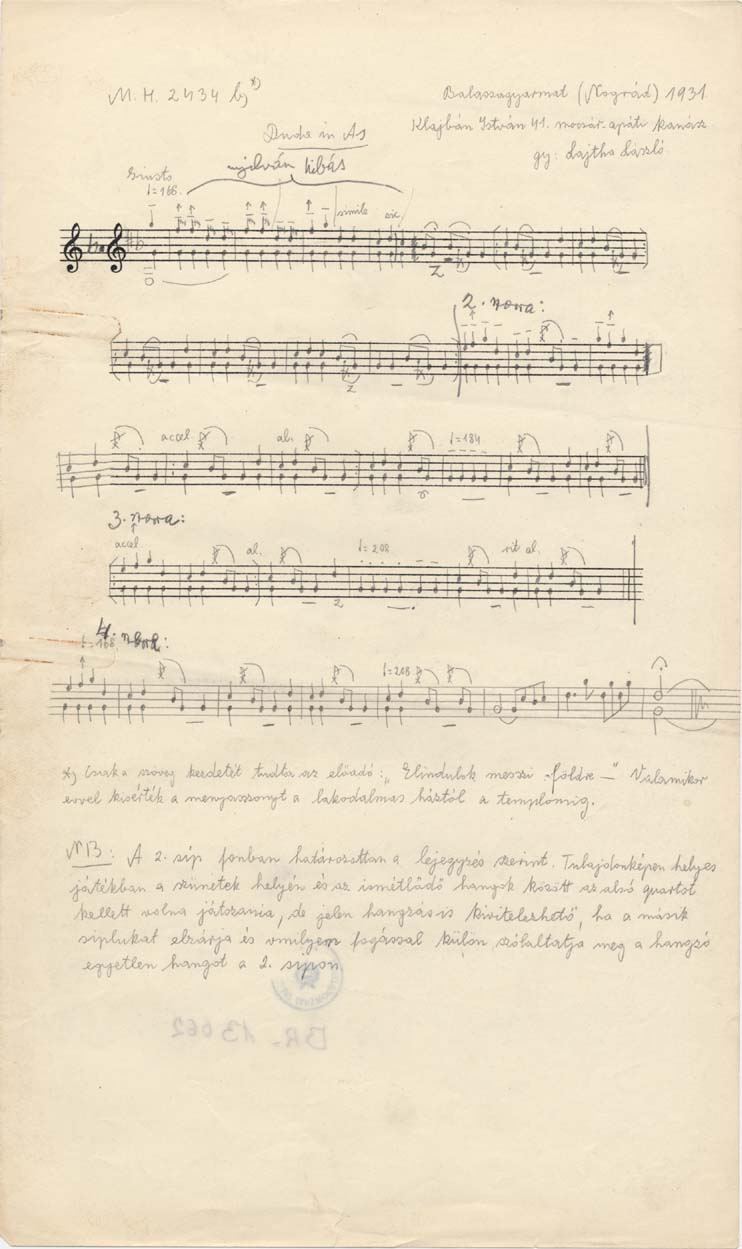 M. H. 2434 b) *)
Balassagyarmat (Nográd) 1931.
Klajbán István 41. mocsár-apáti kanász.
gy: Lajtha László.
Duda in As
nyilván hibás
Giusto
♩=168.
simile sic
2. nova:
accel. al. ♩=184
3. nova:
accel. al. ♩=208 rit al.
4. nova:
♩=168.
♩=208
*) Csak a szöveg kezdetét tudta az előadó: „Elindulok messzi földre —" Valamikor
evvel kisérték a menyasszonyt a lakodalmas háztól a templomig.
NB: A 2. sip fonban határozottan a lejegyzés szerint. Tulajdonképen helyes
játékban a szünetek helyén és az ismétlődő hangok között az alsó quartot
kellett volna játszania, de jelen hangzás is kivitelezhető, ha a másik
siplukat elzárja és vmilyen fogással külön szólaltatja meg a hangzó
egyetlen hangot a 2. sipon
BR-13062